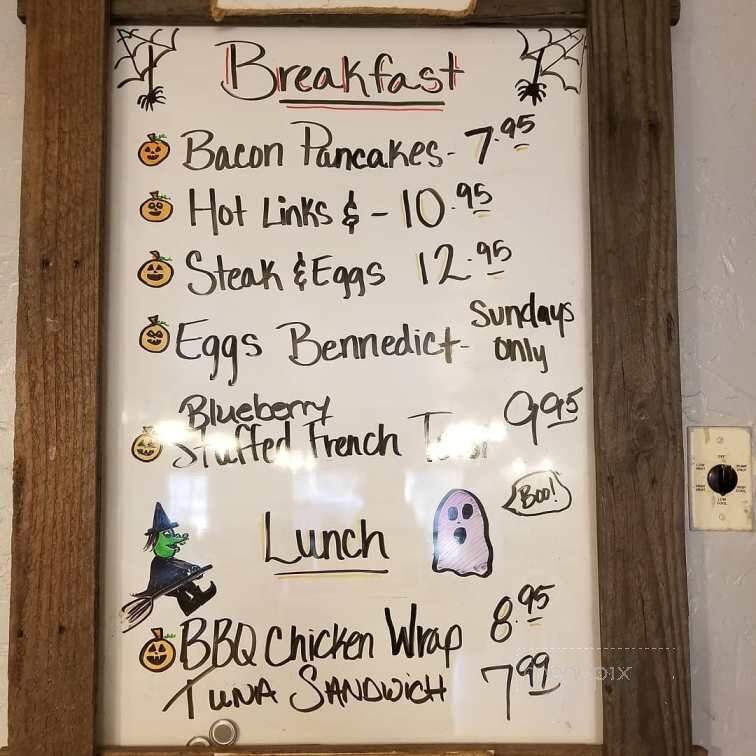 Breakfast
Bacon Pancakes - 7.95
Hot Links & - 10.95
Steak & Eggs 12.95
Eggs Bennedict - Sundays only
Blueberry
Stuffed French Toast 9.95
Boo!
Lunch
BBQ Chicken Wrap 8.95
Tuna Sandwich 7.99